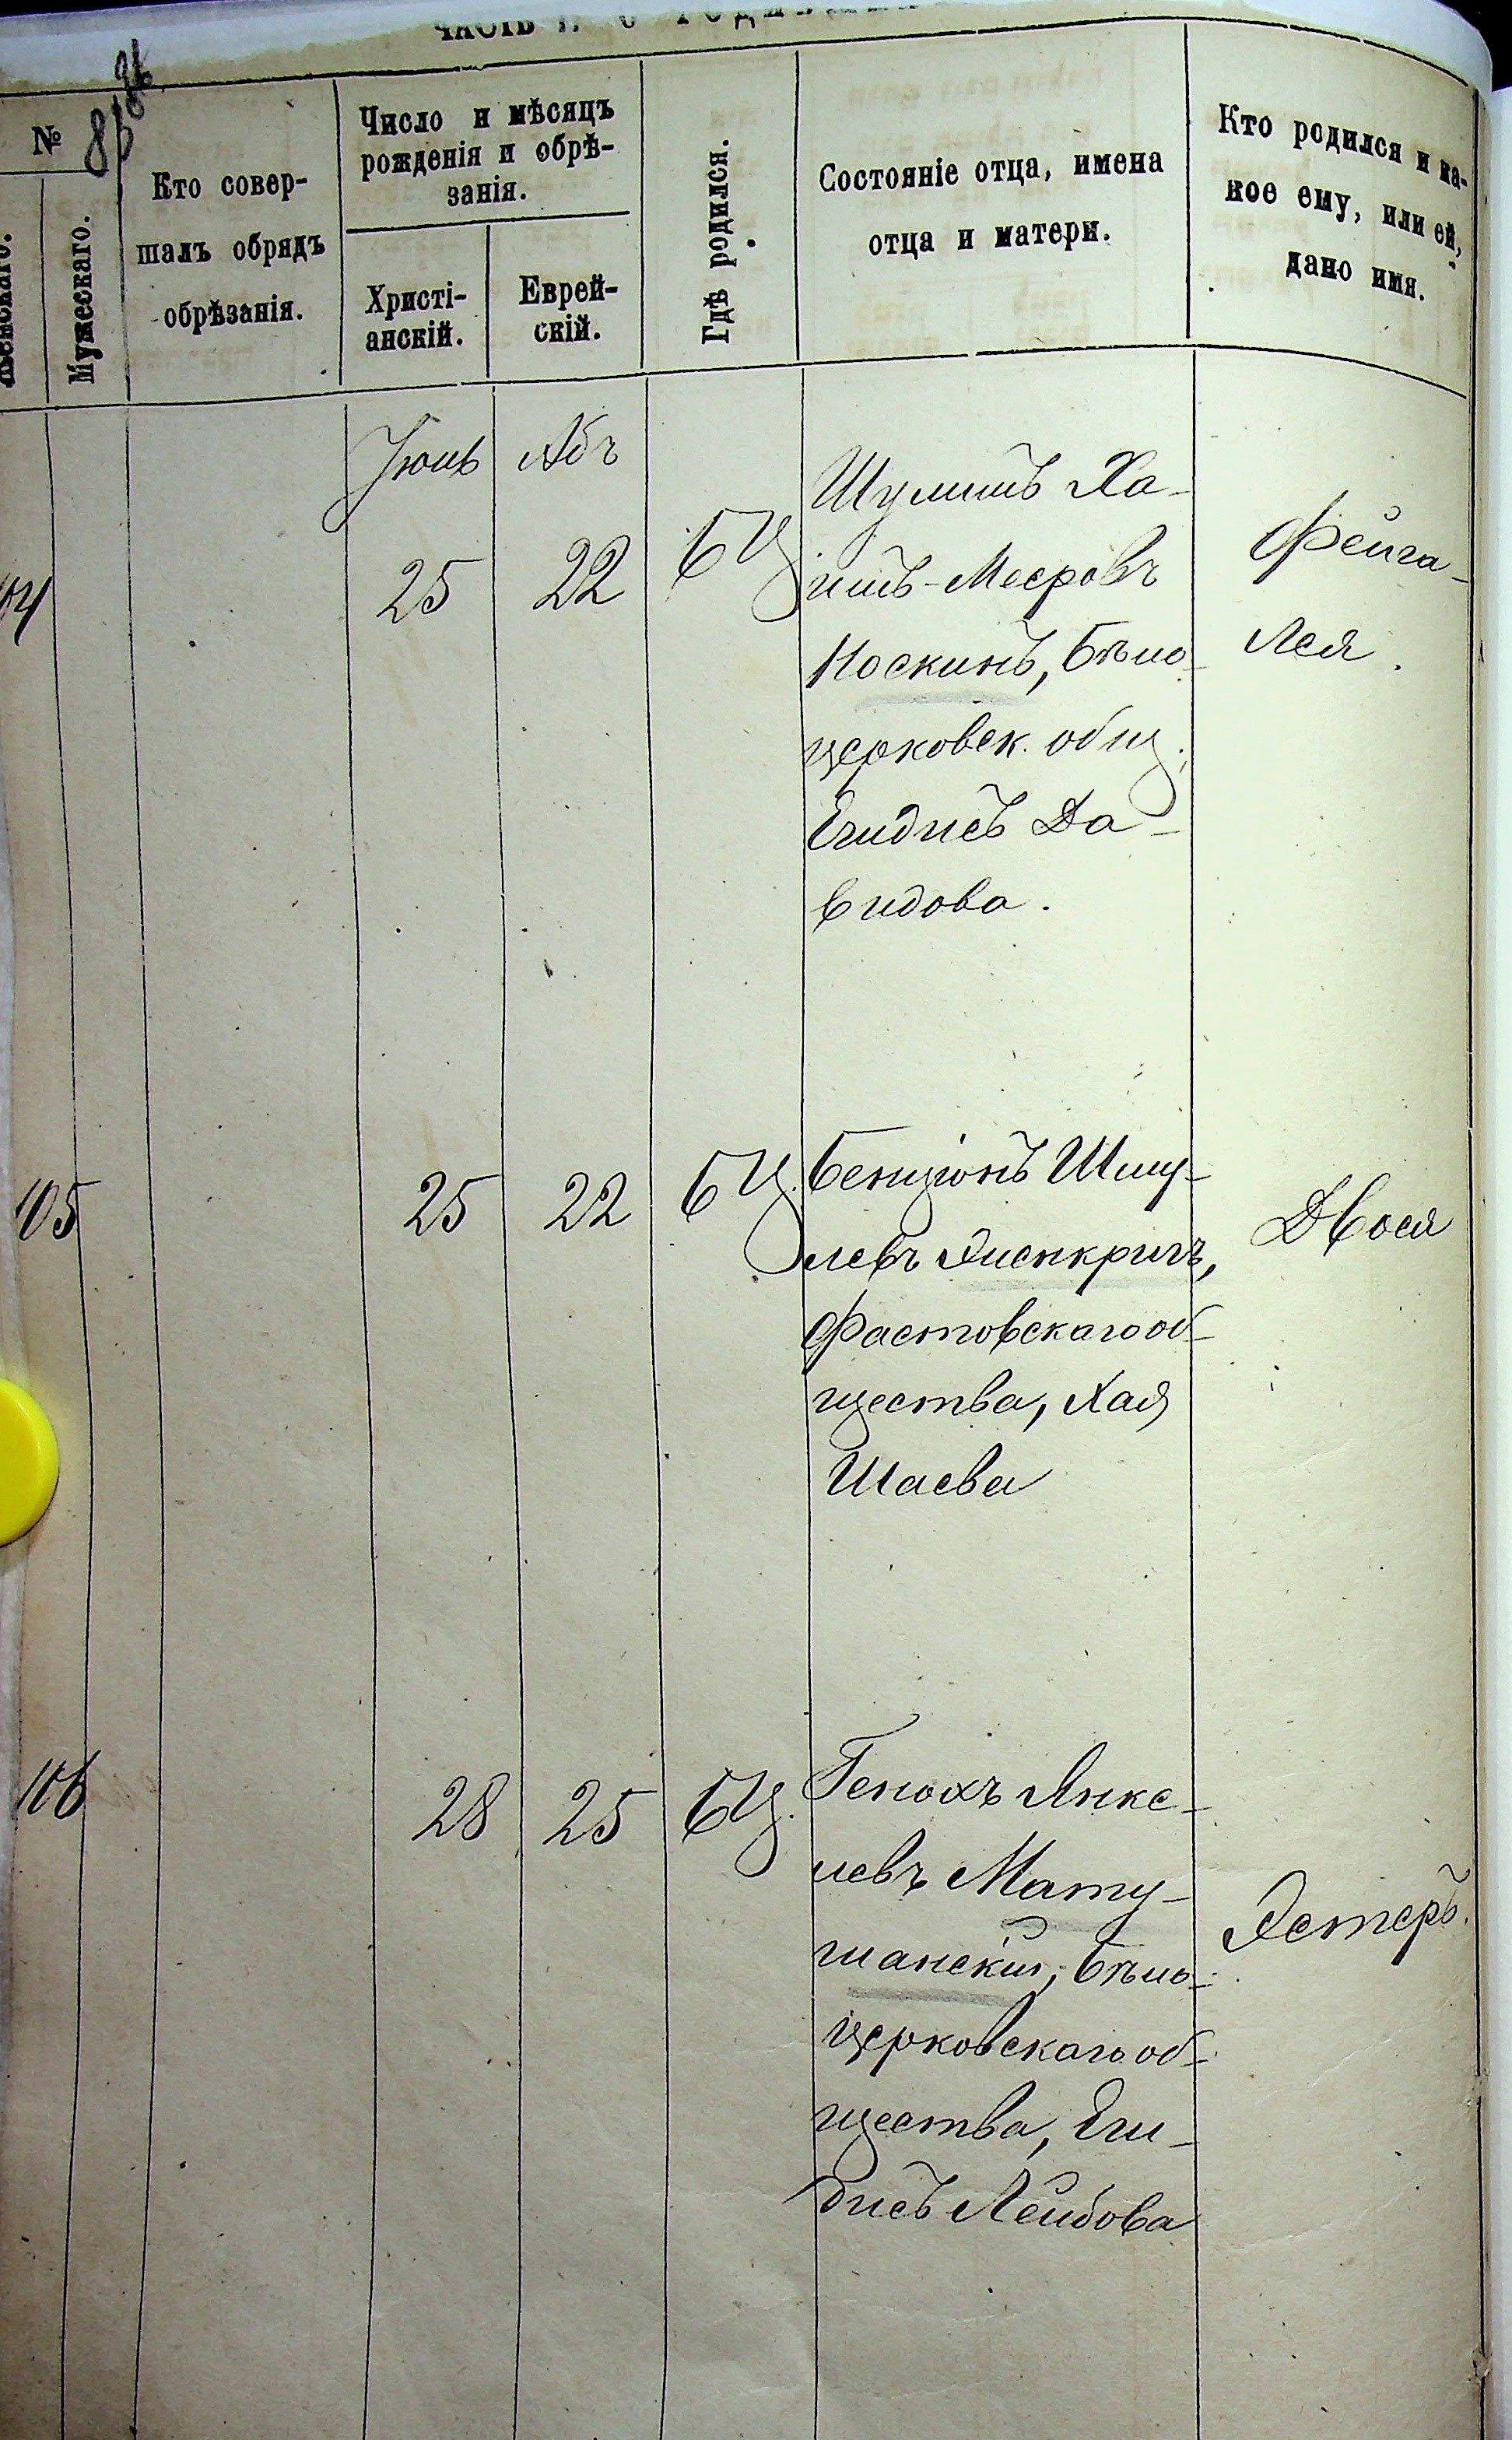 ЧАСТЬ I. О РОДИВШИХ
№
Женскаго.
Мужескаго.
Кто совер-
шалъ обрядъ
обрѣзанія.
Число и мѣсяцъ
рожденія и обрѣ-
занія.
Христі-
анскій.
Еврей-
скій.
Гдѣ родился.
Состояніе отца, имена
отца и матери.
Кто родился и ка-
кое ему, или ей,
дано имя.
Іюнь Абъ
104 25 22 БЦ
Шулимъ Ха-
имъ-Мееровъ
Носкинъ, Бѣло-
церковск. общ.,
Ентисъ Да-
видова.
Фейга-
Лея.
105 25 22 БЦ.
Бенціонъ Шму-
левъ Эйсенкригъ,
Фастовскаго об-
щества, Хая
Шаева
Двося
106 28 25 БЦ.
Генохъ Янке-
левъ Мату-
шанскій, Бѣло-
церковскаго об-
щества, Ен-
тисъ Лейбова
Эстеръ.